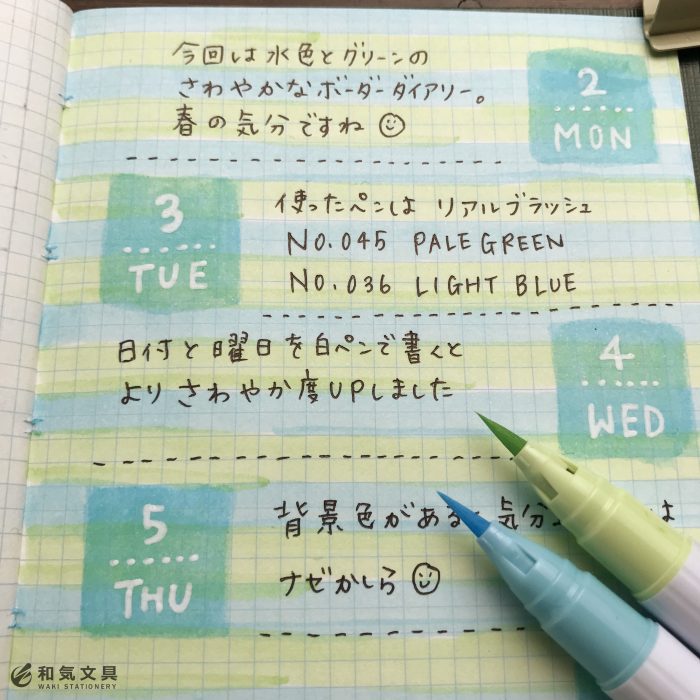 今回は水色とグリーンの
さわやかなボーダーダイアリー。
春の気分ですね
2
MON
3
TUE
使ったペンは リアルブラッシュ
NO.045 PALE GREEN
NO.036 LIGHT BLUE
日付と曜日を白ペンで書くと
よりさわやか度UPしました
4
WED
5
THU
背景色がある 気分 は
ナゼかしら
和気文具
WAKI STATIONERY